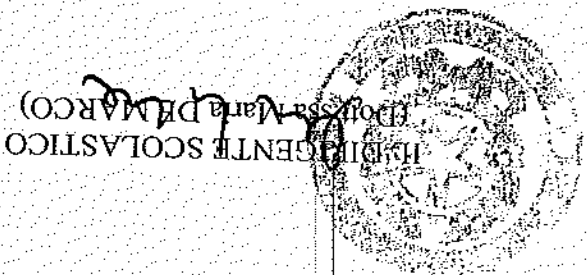 IL DIRIGENTE SCOLASTICO
(Dott.ssa Maria DELMARCO)